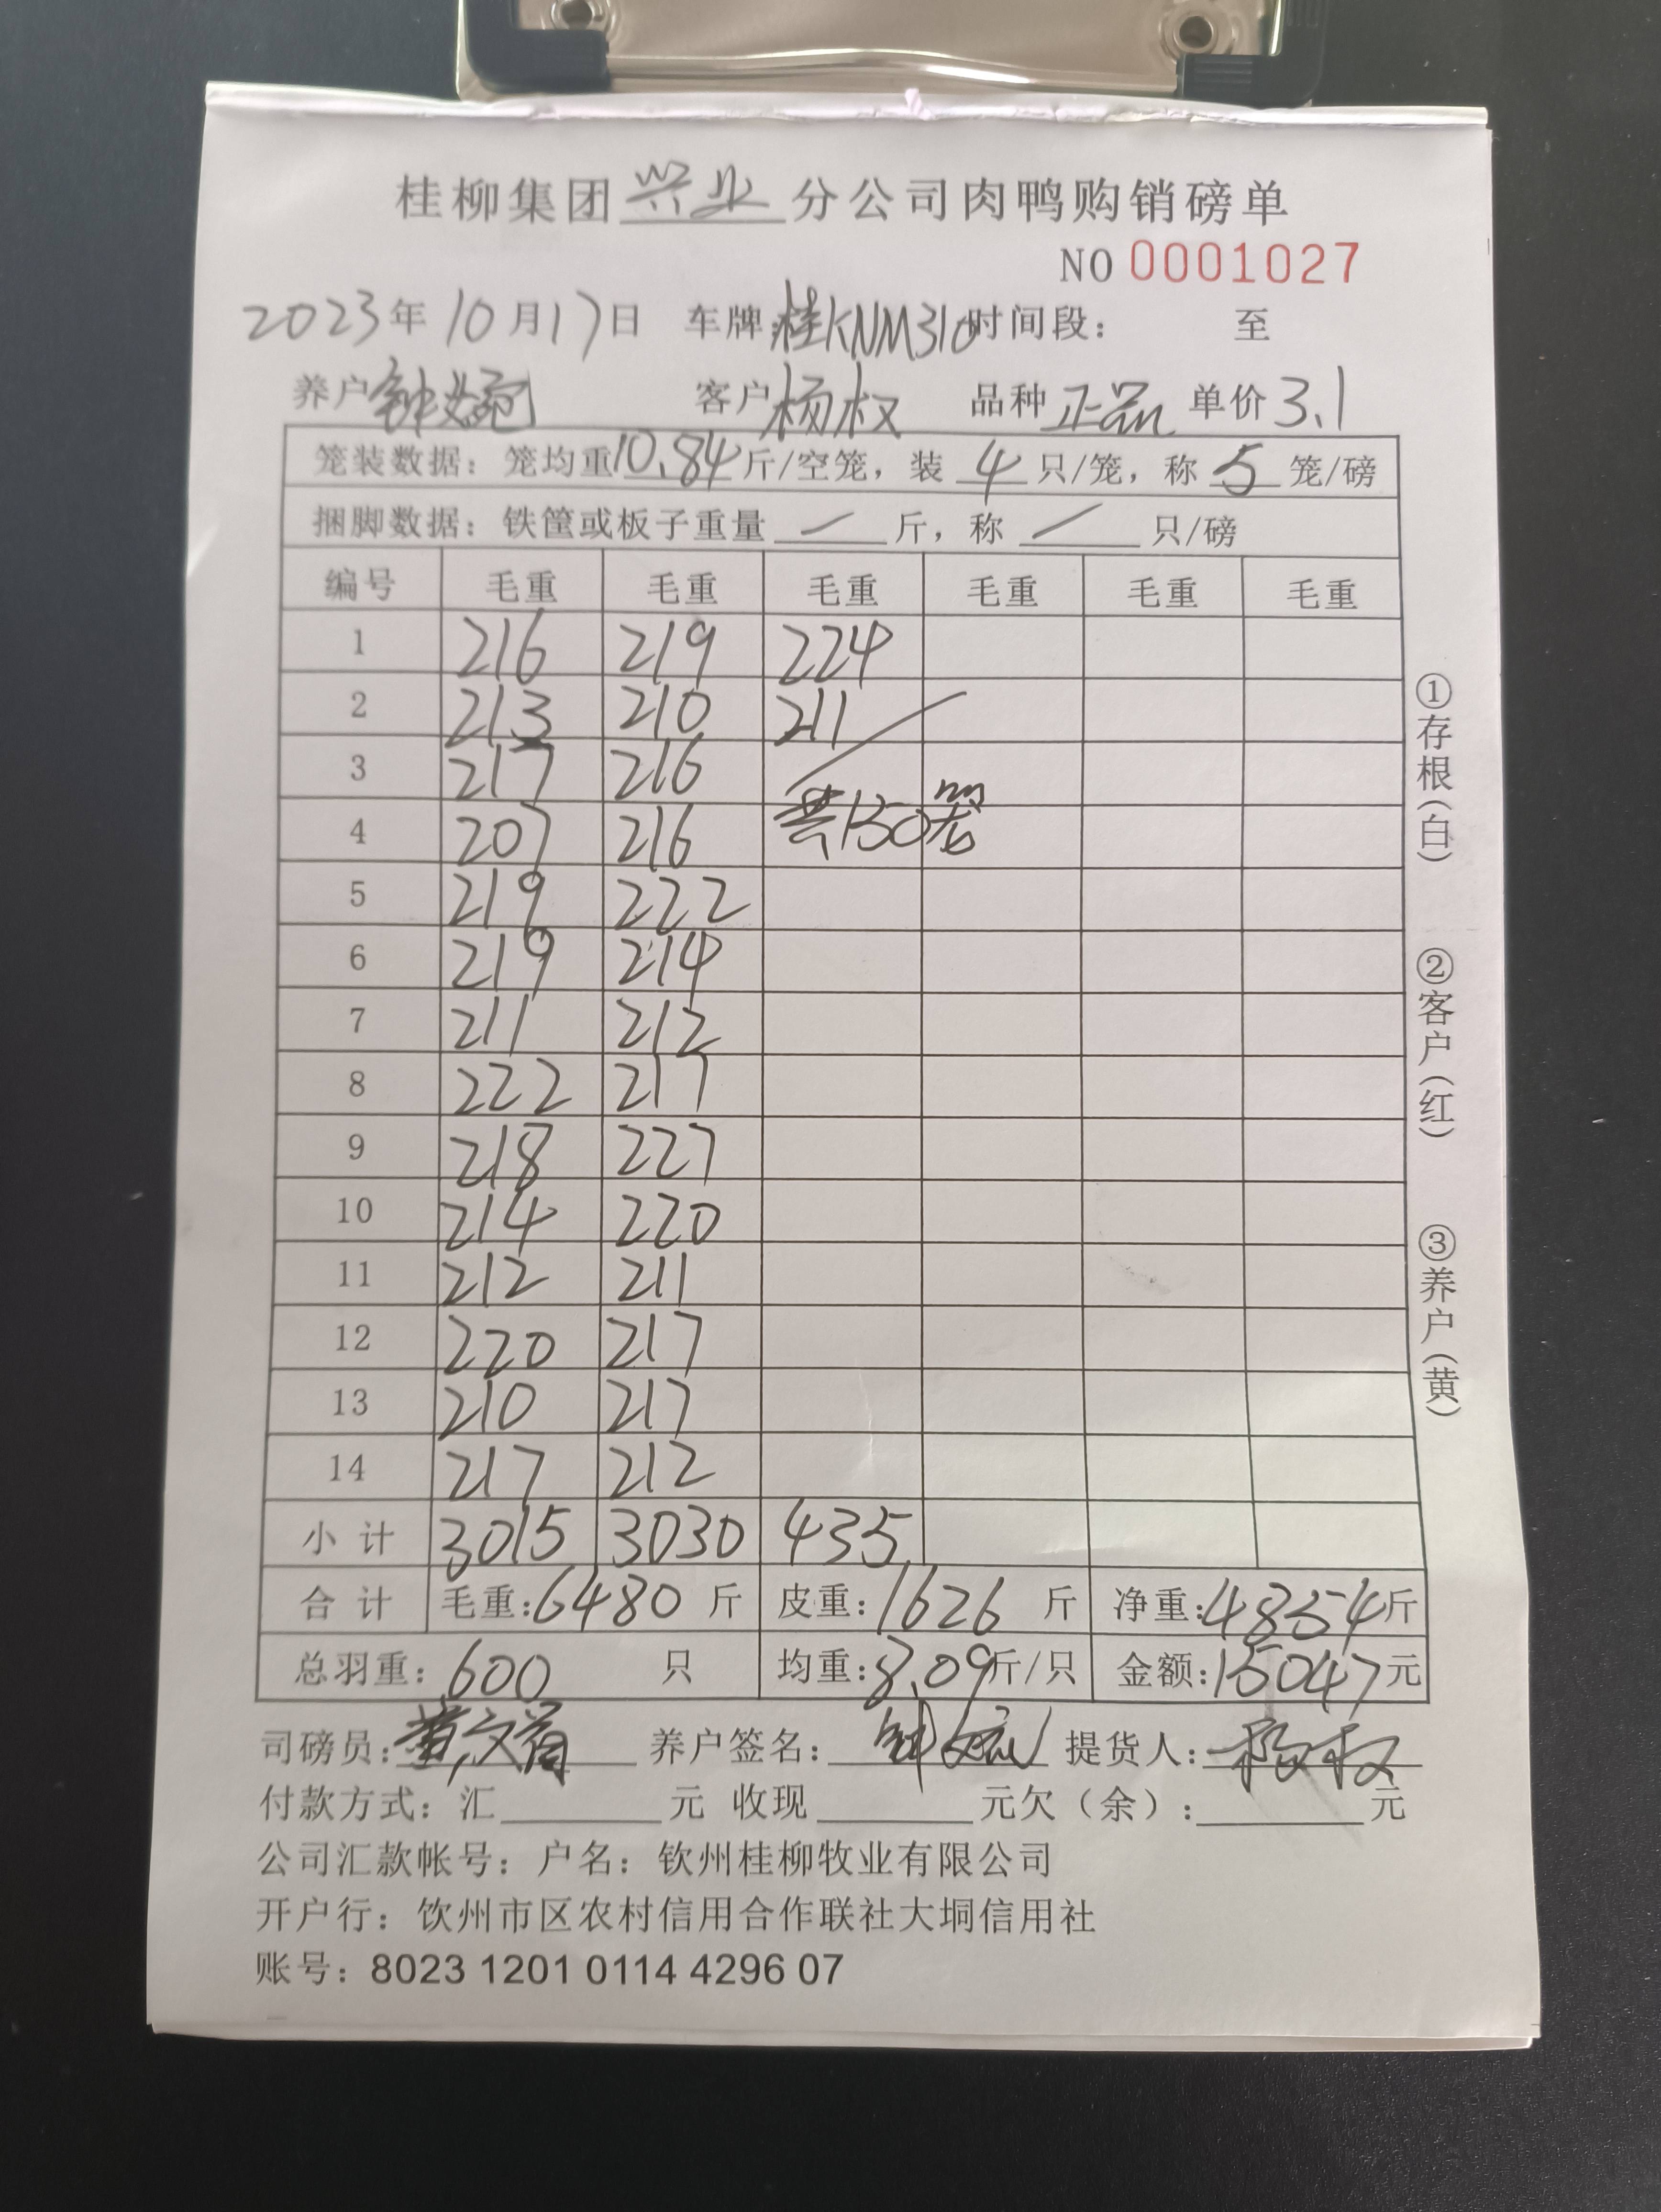 桂柳集团兴业分公司肉鸭购销磅单
NO 0001027
2023年10月17日 车牌:桂KNM310时间段: 至
养户 钟 客户 杨权 品种 正品 单价 3.1
笼装数据: 笼均重10.84斤/空笼, 装 4 只/笼, 称 5 笼/磅
捆脚数据: 铁筐或板子重量 / 斤, 称 / 只/磅
编号 毛重 毛重 毛重 毛重 毛重 毛重
1 216 219 224
2 213 210 211
3 217 216
4 207 216 共150笼
5 219 222
6 219 214
7 211 212
8 222 217
9 218 227
10 214 220
11 212 211
12 220 217
13 210 217
14 217 212
小计 3015 3030 435
合计 毛重:6480斤 皮重:1626斤 净重:4854斤
总羽重:600 只 均重:8.09斤/只 金额:15047元
司磅员: 养户签名: 钟 提货人: 杨权
付款方式: 汇 元 收现 元欠(余): 元
公司汇款帐号: 户名: 钦州桂柳牧业有限公司
开户行: 钦州市区农村信用合作联社大垌信用社
账号: 8023 1201 0114 4296 07
①存根(白)
②客户(红)
③养户(黄)